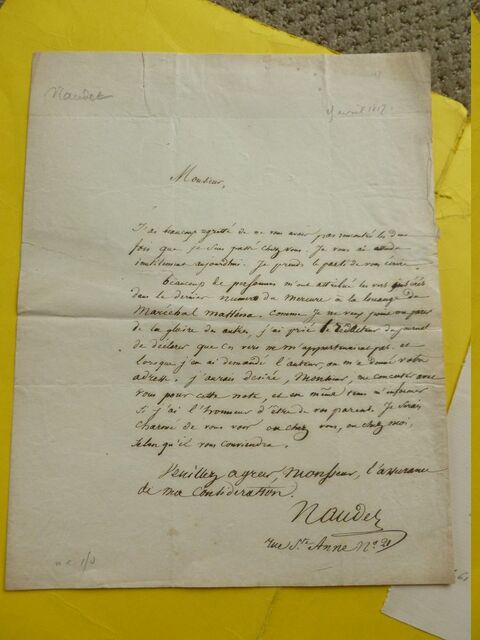 Naudet
avril 1817
Monsieur,
J'ai beaucoup regretté de ne vous avoir pas rencontré les deux
fois que je suis passé chez vous. Je vous ai attendu
inutilement aujourd'hui. Je prends le parti de vous écrire.
Beaucoup de personnes m'ont attribué les vers publiés
dans le dernier numéro du Mercure à la louange du
Maréchal Masséna. Comme je ne veux point me parer
de la gloire des autres, j'ai prié l'Editeur du journal
de déclarer que ces vers ne m'appartenaient pas. et
lorsque j'en ai demandé l'auteur, on m'a donné votre
adresse. j'aurais désiré, Monsieur, me concerter avec
vous pour cette note, et en même tems m'informer
si j'ai l'honneur d'être de vos parents. Je serais
charmé de vous voir ou chez vous, ou chez moi,
selon qu'il vous conviendra.
Veuillez agréer, Monsieur, l'assurance
de ma considération.
Naudet
rue Ste Anne No